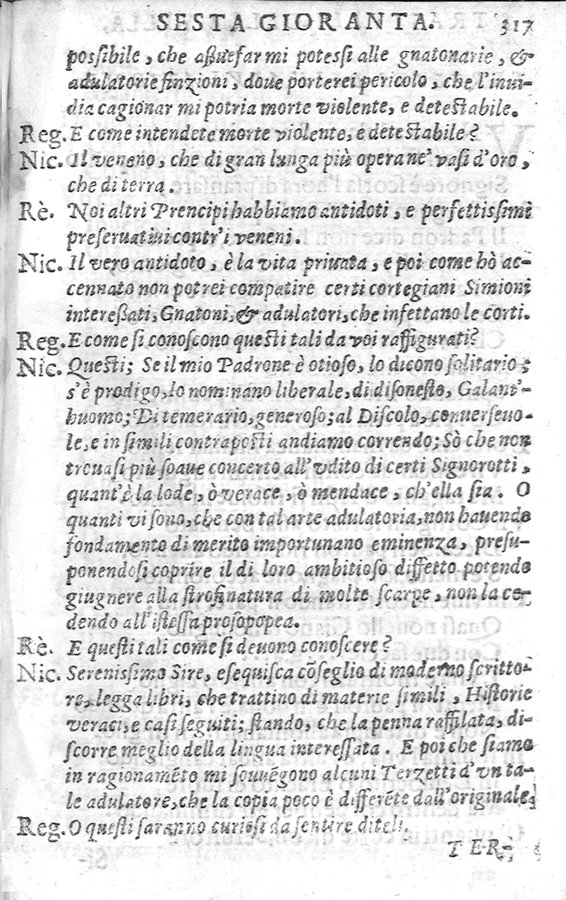 SESTA GIORANTA. 317
possibile, che assuefar mi potessi alle gnatonarie, &
adulatorie finzioni, doue porterei pericolo, che l'inui-
dia cagionar mi potria morte violente, e detestabile.
Reg. E come intendete morte violente, e detestabile?
Nic. Il veneno, che di gran lunga più opera ne' vasi d'oro,
che di terra.
Rè. Noi altri Prencipi habbiamo antidoti, e perfettissimi
preseruatiui contr'i veneni.
Nic. Il vero antidoto, è la vita priuata, e poi come hò ac-
cennato non potrei compatire certi cortegiani Simioni
interessati, Gnatoni, & adulatori, che infettano le corti.
Reg. E come si conoscono questi tali da voi raffigurati?
Nic. Questi; Se il mio Padrone è otioso, lo dicono solitario;
s'è prodigo, lo nominano liberale, di disonesto, Galant'-
huomo; Di temerario, generoso; al Discolo, conuerseuo-
le, e in simili contraposti andiamo correndo; Sò che non
trouasi più soaue concerto all'vdito di certi Signorotti,
quant'è la lode, ò verace, ò mendace, ch'ella sia. O
quanti vi sono, che con tal arte adulatoria, non hauendo
fondamento di merito importunano eminenza, presu-
ponendosi coprire il di loro ambitioso diffetto potendo
giugnere alla strofinatura di molte scarpe, non la ce-
dendo all'istessa prosopopea.
Rè. E questi tali come si deuono conoscere?
Nic. Serenissimo Sire, esequisca cōseglio di moderno scritto-
re, legga libri, che trattino di materie simili, Historie
veraci, e casi seguiti; stando, che la penna raffilata, di-
scorre meglio della lingua interessata. E poi che siamo
in ragionamēto mi souuēgono alcuni Terzetti d'vn ta-
le adulatore, che la copia poco è differēte dall'originale.
Reg. O questi saranno curiosi da sentire diteli.
TER-